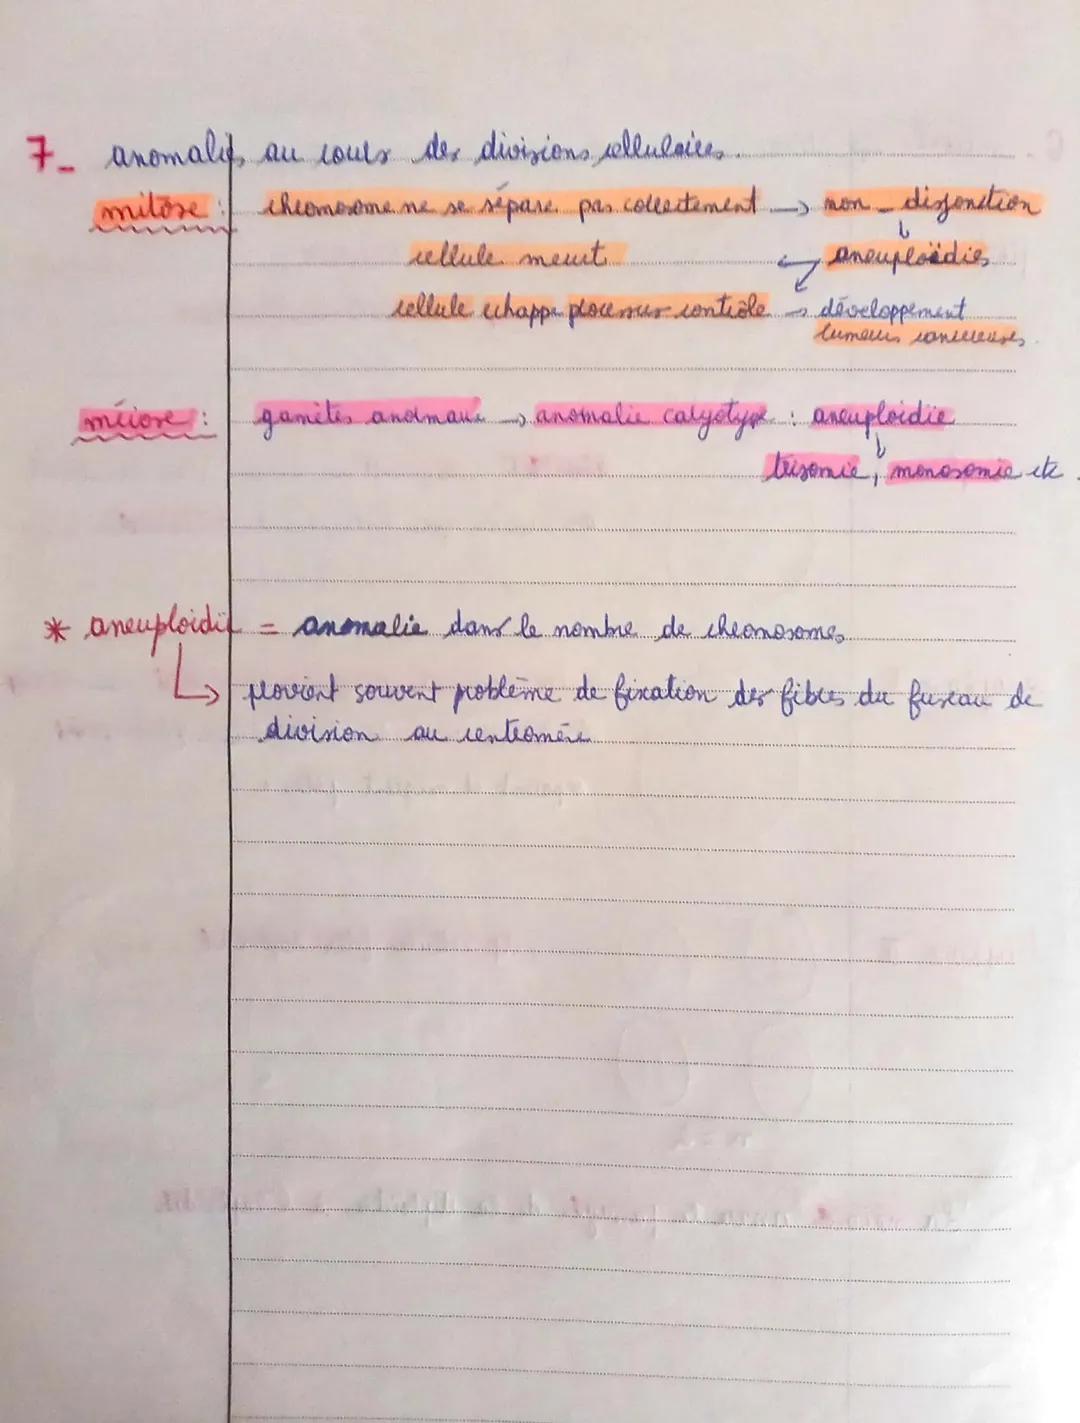 7_ anomalies au cours des divisions cellulaires.
mitose : chromosome ne se sépare pas correctement → non _ disjonction
cellule meurt ← aneuploïdies
cellule echappe processus contrôle → développement
tumeurs cancereuses.
méiose : gamètes anormaux → anomalie caryotype : aneuploidie
trisomie, monosomie etc.
* aneuploidie = anomalie dans le nombre de chromosomes
↳ provient souvent problème de fixation des fibres du fuseau de
division au centromère